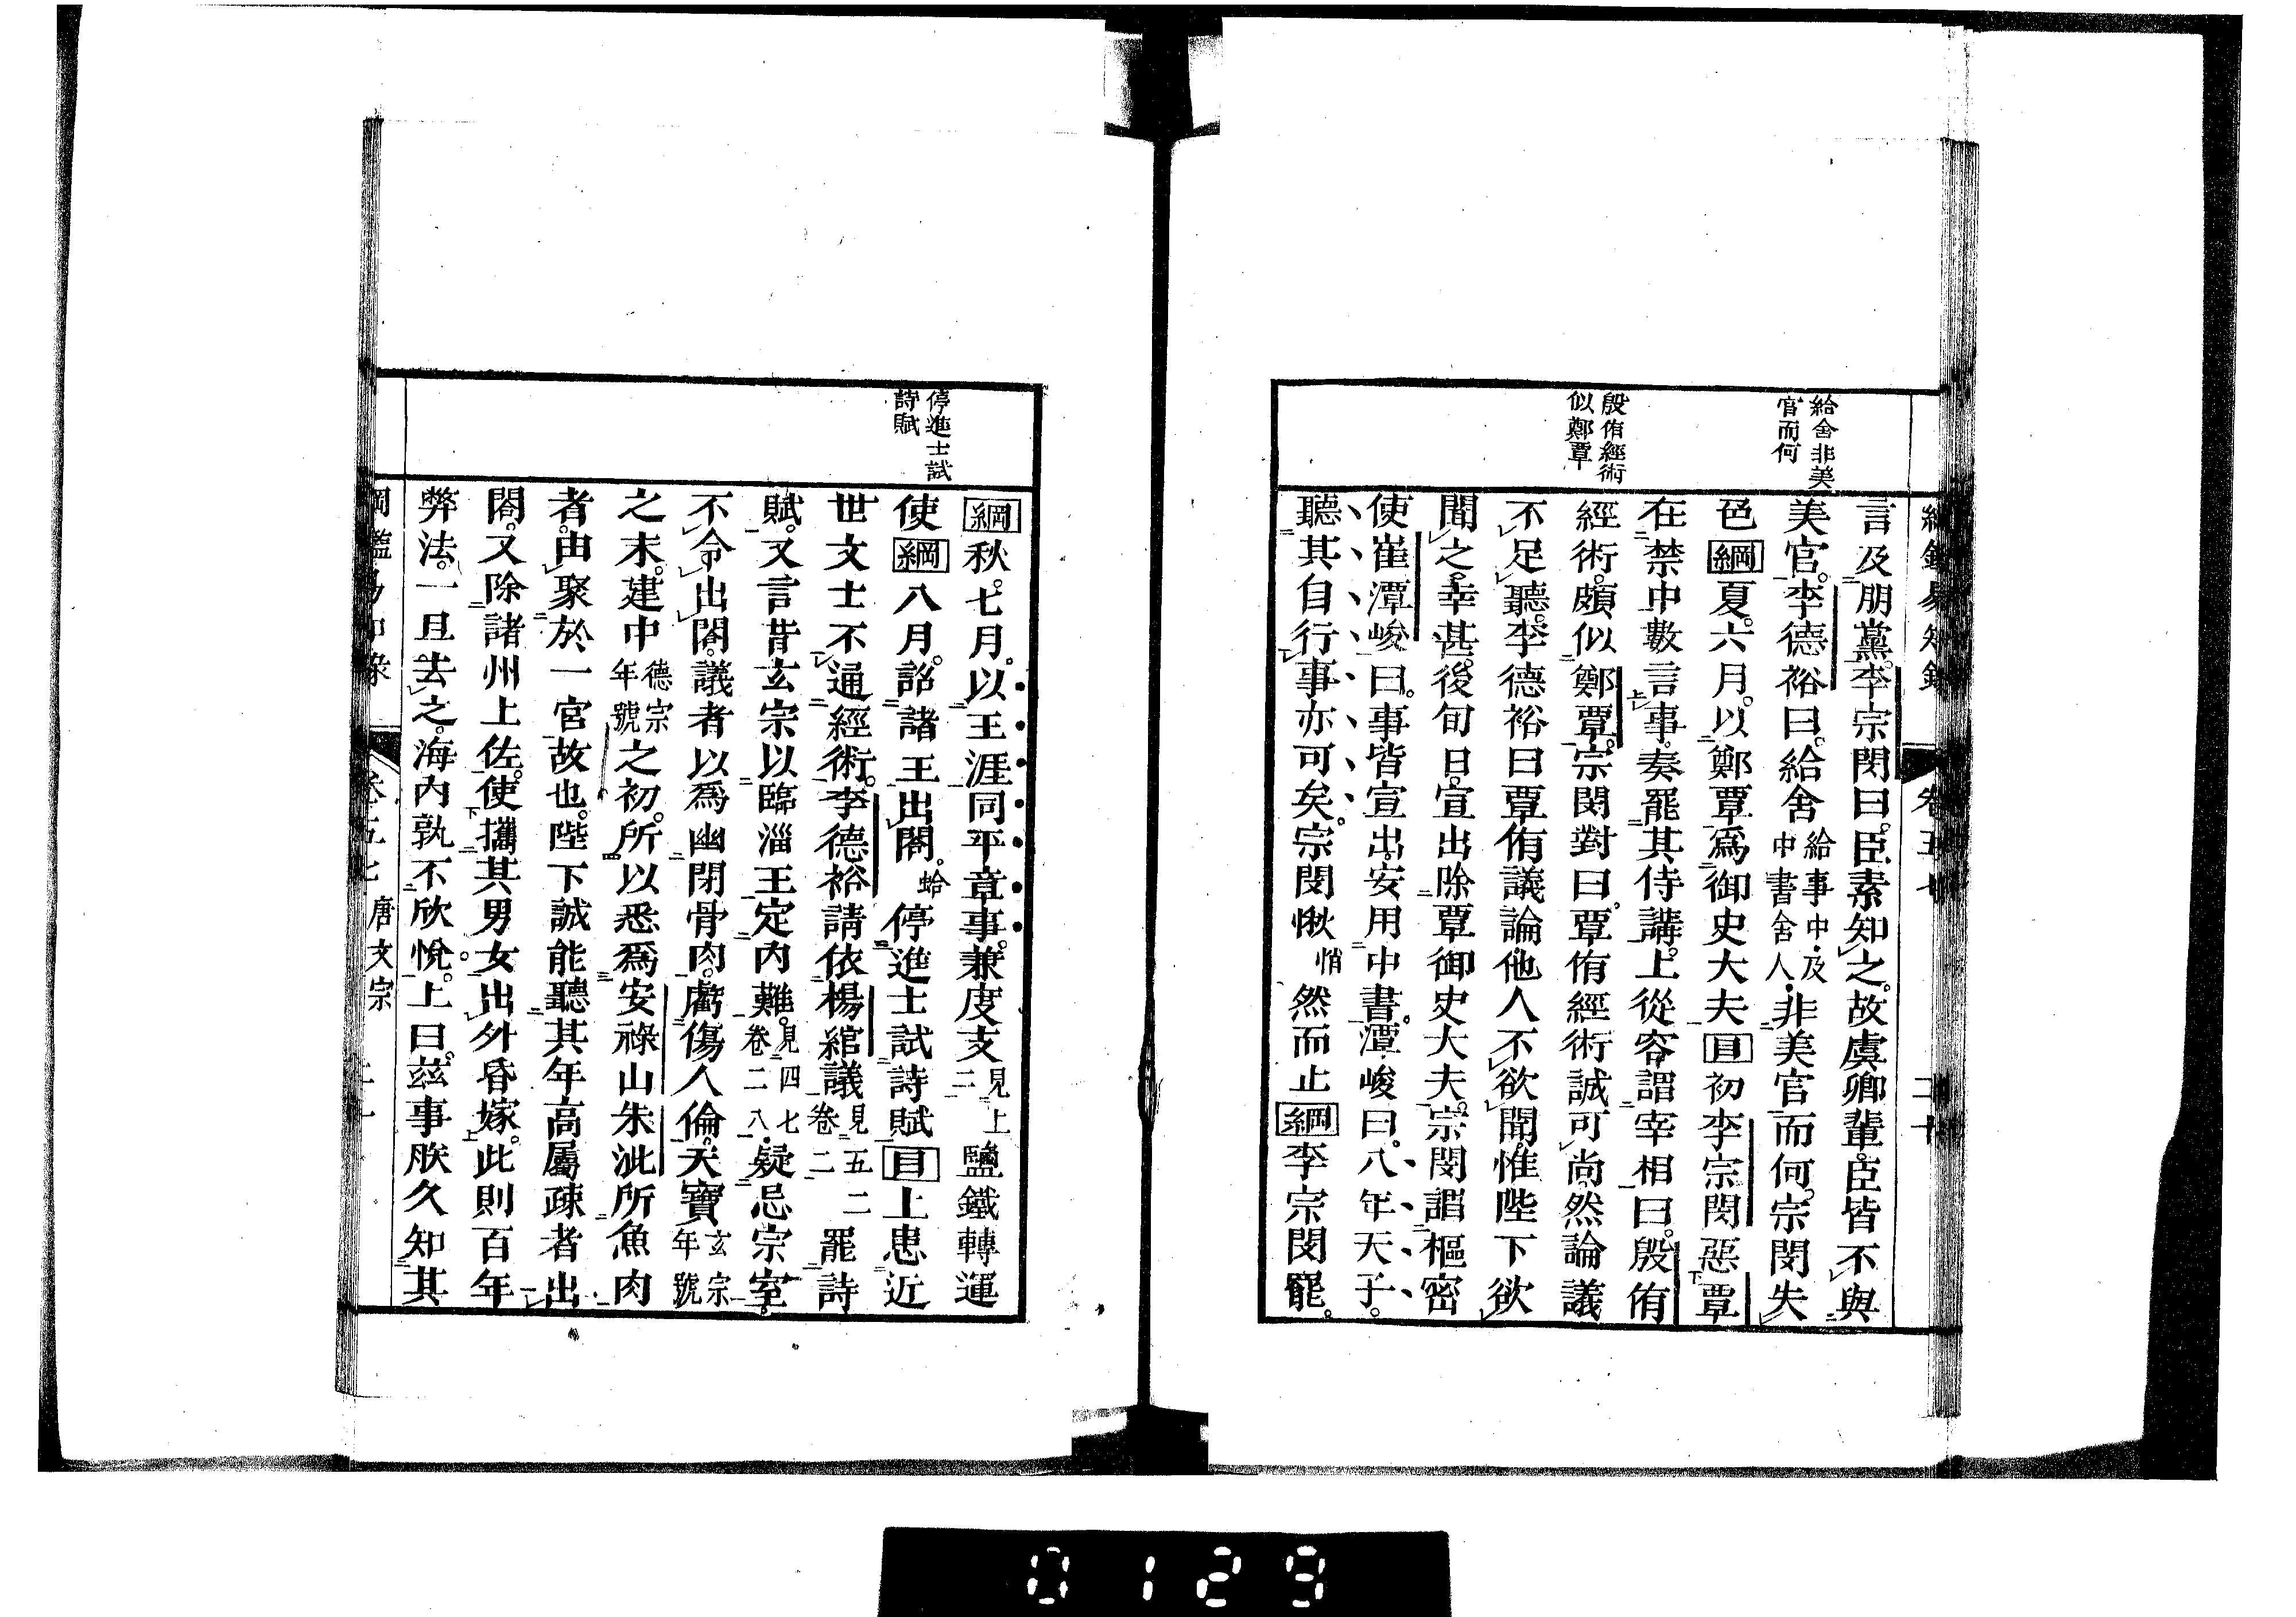 綱鑑易知錄 卷五七 二十
給舍非美
官而何
殷侑經術
似鄭覃
言及朋黨。李宗閔曰。臣素知之。故虞卿輩。臣皆不與
美官。李德裕曰。給舍給事中·及中書舍人·非美官而何。宗閔失
色綱夏。六月。以鄭覃爲御史大夫目初李宗閔惡覃
在禁中數言事。奏罷其侍講。上從容謂宰相曰。殷侑
經術。頗似鄭覃。宗閔對曰。覃侑經術誠可尚。然論議
不足聽。李德裕曰覃侑議論他人不欲聞。惟陛下欲
聞之。幸甚。後旬日。宣出除覃御史大夫。宗閔謂樞密
使崔潭峻曰。事皆宣出。安用中書。潭峻曰。八年天子。
聽其自行事亦可矣。宗閔愀悄然而止綱李宗閔罷。
停進士試
詩賦
綱秋。七月。以王涯同平章事。兼度支見上二鹽鐵轉運
使綱八月。詔諸王出閤。蛤停進士試詩賦目上患近
世文士不通經術。李德裕請依楊綰議見五二卷二罷詩
賦。又言昔玄宗以臨淄王定內難。見四七卷二八·疑忌宗室。
不令出閤。議者以爲幽閉骨肉。虧傷人倫。天寶玄宗年號
之末。建中德宗年號之初。所以悉爲安祿山朱泚所魚肉
者。由聚於一宮故也。陛下誠能聽其年高屬疎者出
閤。又除諸州上佐。使攜其男女出外昏嫁。此則百年
弊法。一旦去之。海內孰不欣悅。上曰。茲事朕久知其
綱鑑易知錄 卷五七 唐文宗 二十
0129